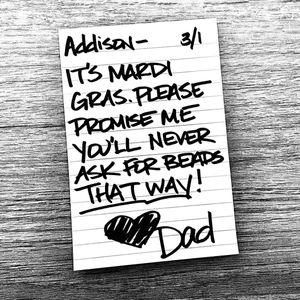 Addison- 3/1
IT'S MARDI
GRAS. PLEASE
PROMISE ME
YOU'LL NEVER
ASK FOR BEADS
THAT WAY!
Dad